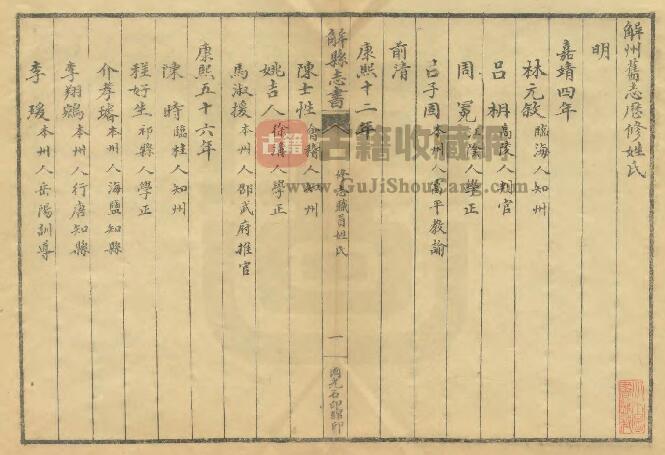 解州舊志歷修姓氏
明
嘉靖四年
林元敘 臨海人知州
呂柟 高陵人判官
周冕 人學正
呂子固 本州人高平教諭
前清
康熙十二年
解縣志書 修志職員姓氏 一 石印館印
陳士性 會稽人知州
姚吉人 徐溝人學正
馬淑援 本州人邵武府推官
康熙五十六年
陳時 臨桂人知州
程好生 祁縣人學正
介孝瑹 本州人海鹽知縣
李翔鵷 本州人行唐知縣
李瑗 本州人岳陽訓導
古籍收藏网
www.GuJiShouCang.com
古籍